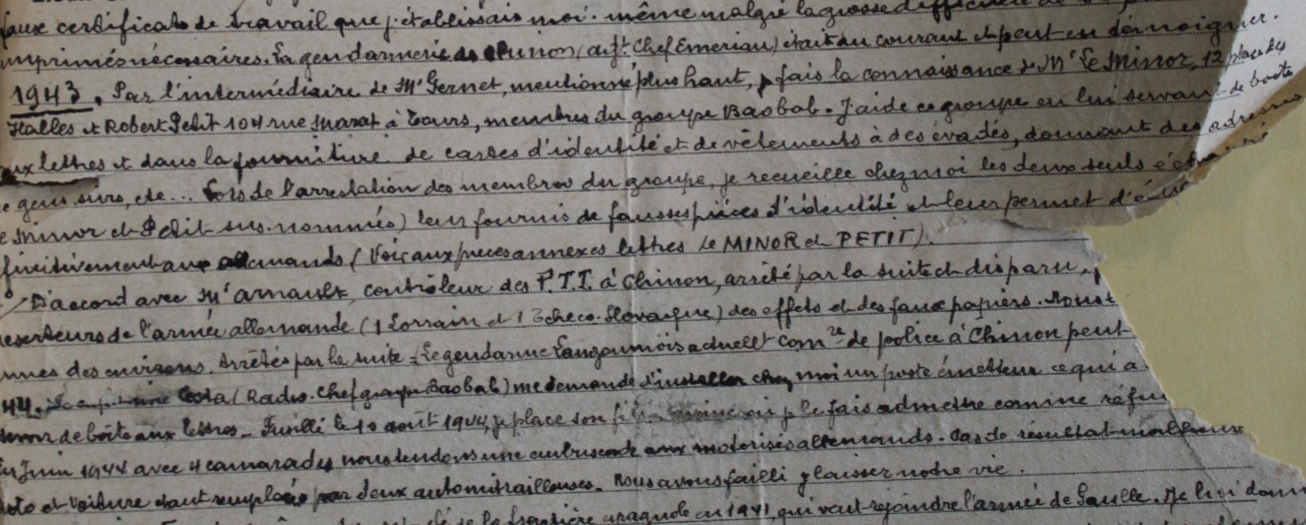 faux certificats de travail que j'établissais moi-même malgré la grosse difficulté de
imprimés nécessaires. La gendarmerie de Chinon (adjt Chef Emeriau) était au courant et peut en témoigner.
1943. Par l'intermédiaire de Mr Gernet, mentionné plus haut, je fais la connaissance de Mr Le Minor, 12 place des
Halles et Robert Petit 104 rue Marat à Tours, membres du groupe Baobab. J'aide ce groupe en lui servant de boîte
aux lettres et dans la fourniture de cartes d'identité et de vêtements à des évadés, donnant des adresses
de gens surs, etc... Lors de l'arrestation des membres du groupe, je recueille chez moi les deux seuls
Le Minor et Petit sus-nommés) leur fournis de fausses pièces d'identité et leur permet
finitivement aux allemands (Voir aux pièces annexes lettres Le MINOR et PETIT).
D'accord avec Mr Arnault, contrôleur des P.T.T. à Chinon, arrêté par la suite et disparu,
déserteurs de l'armée allemande (1 Lorrain et 1 Tchéco-Slovaque) des effets et des faux papiers.
des environs. Arrêtés par la suite = Le gendarme Langoumois actuellt comre de police à Chinon peut
44. Le capitaine (Radio-Chef groupe Baobab) me demande d'installer chez moi un poste émetteur ce qui
de boîte aux lettres. Fusillé le 10 août 1944, je place son que je fais admettre comme
En Juin 1944 avec 4 camarades nous tendons une embuscade aux motorisés allemands. Pas de résultat
moto et voiture étant remplacés par deux automitrailleuses. Nous avons failli y laisser notre vie.
de la frontière espagnole en 1941, qui veut rejoindre l'armée de Gaulle. Je lui